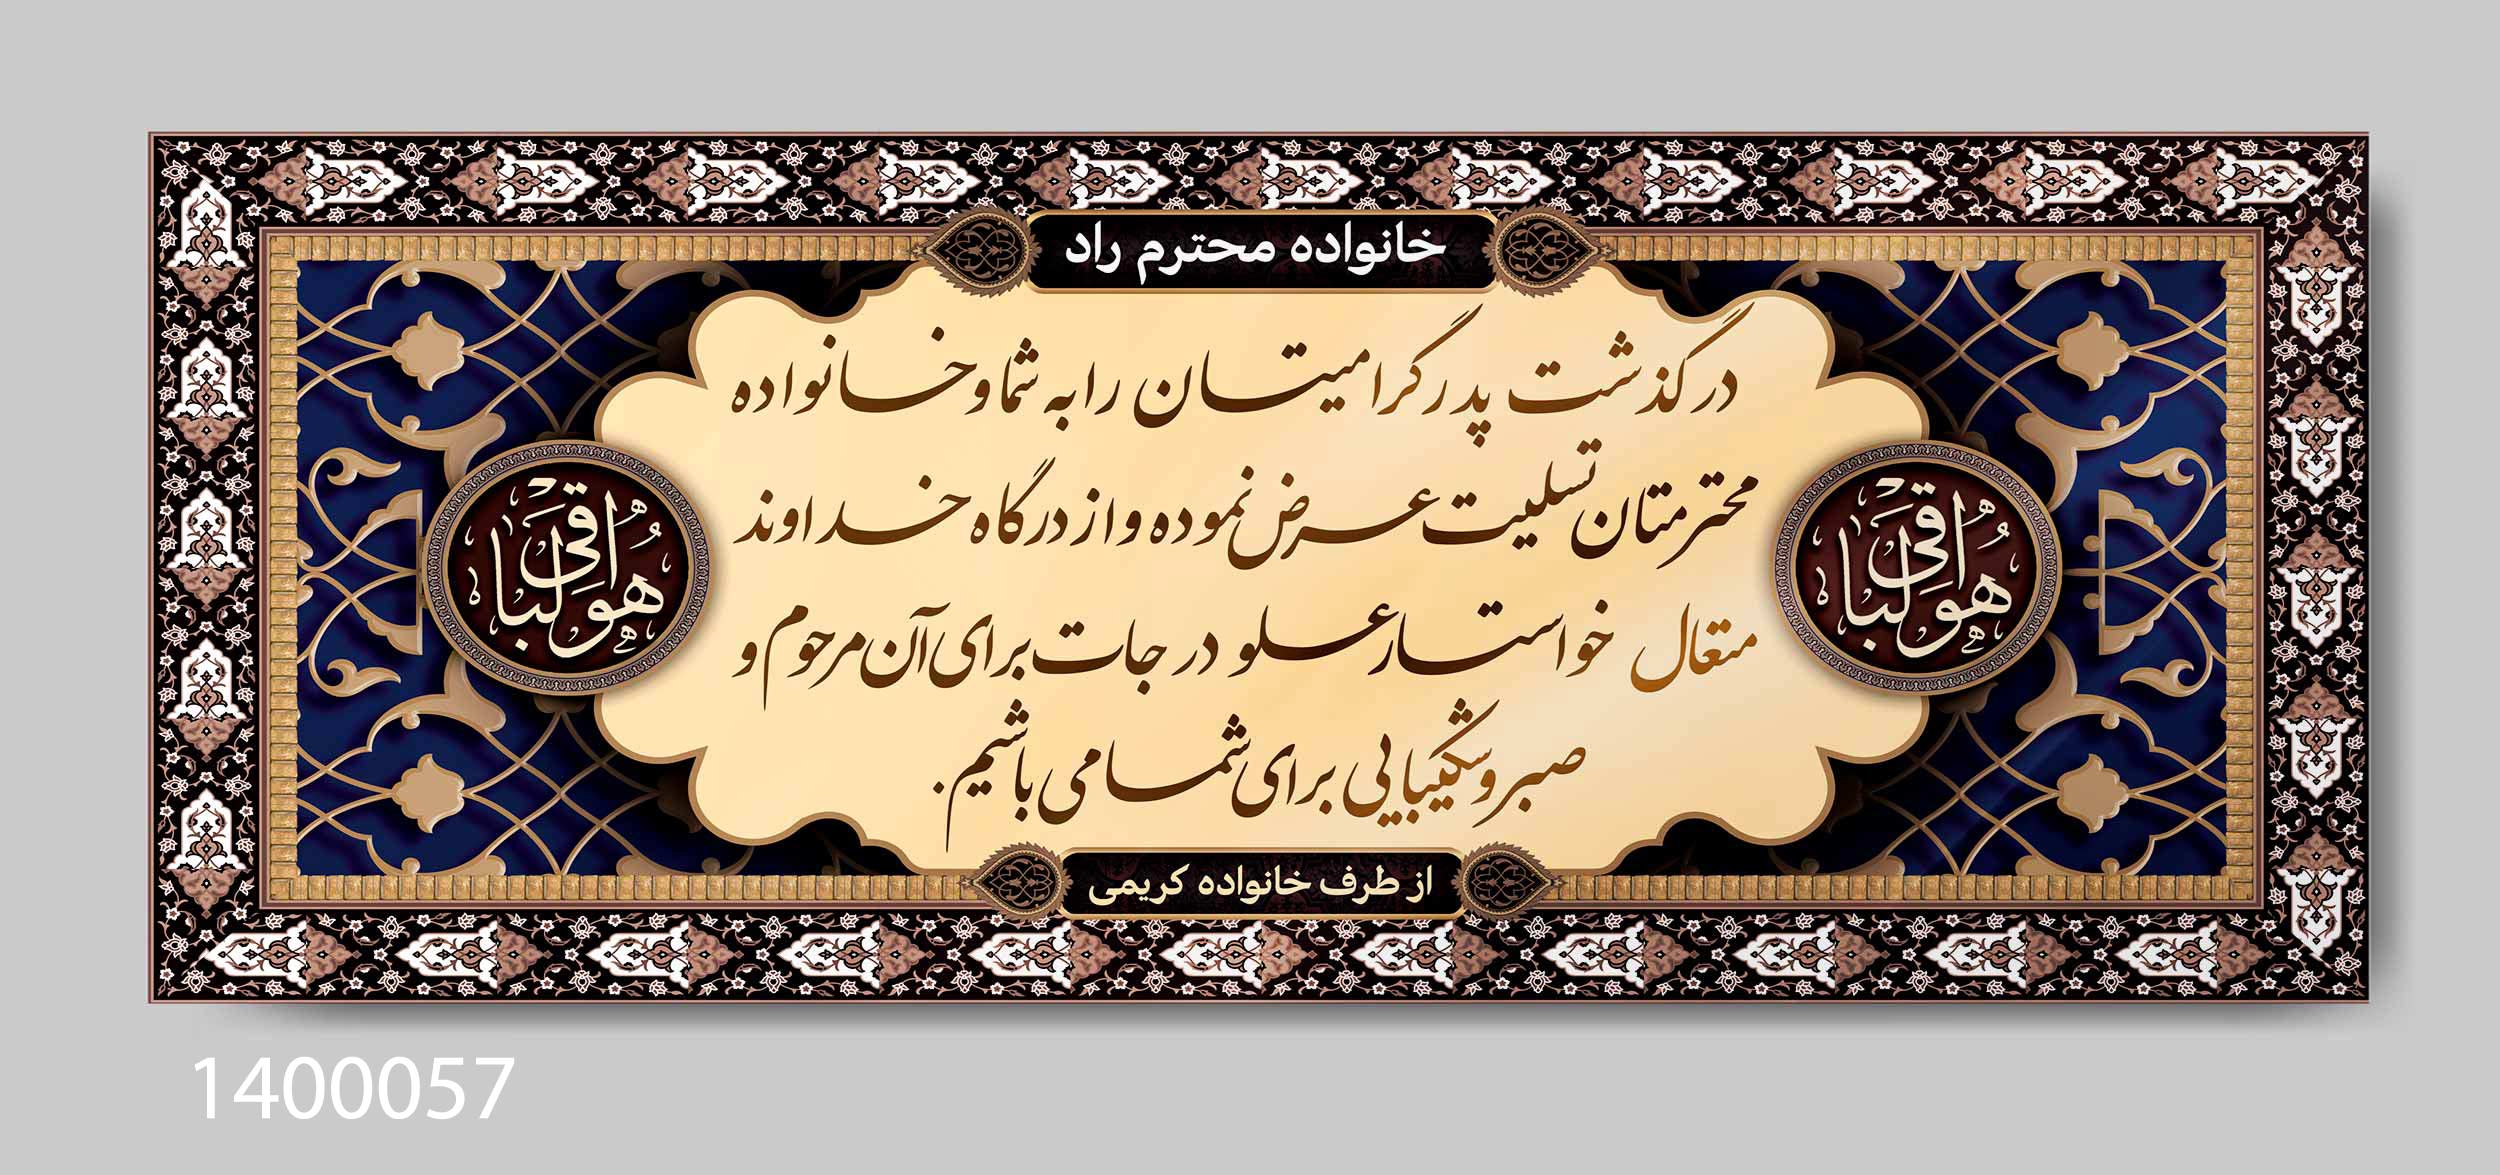 خانواده محترم راد
درگذشت پدر گرامیتان را به شما و خانواده
محترمتان تسلیت عرض نموده و از درگاه خداوند
متعال خواستار علو درجات برای آن مرحوم و
صبر و شکیبایی برای شما می باشیم.
هو الباقی
هو الباقی
از طرف خانواده کریمی
1400057